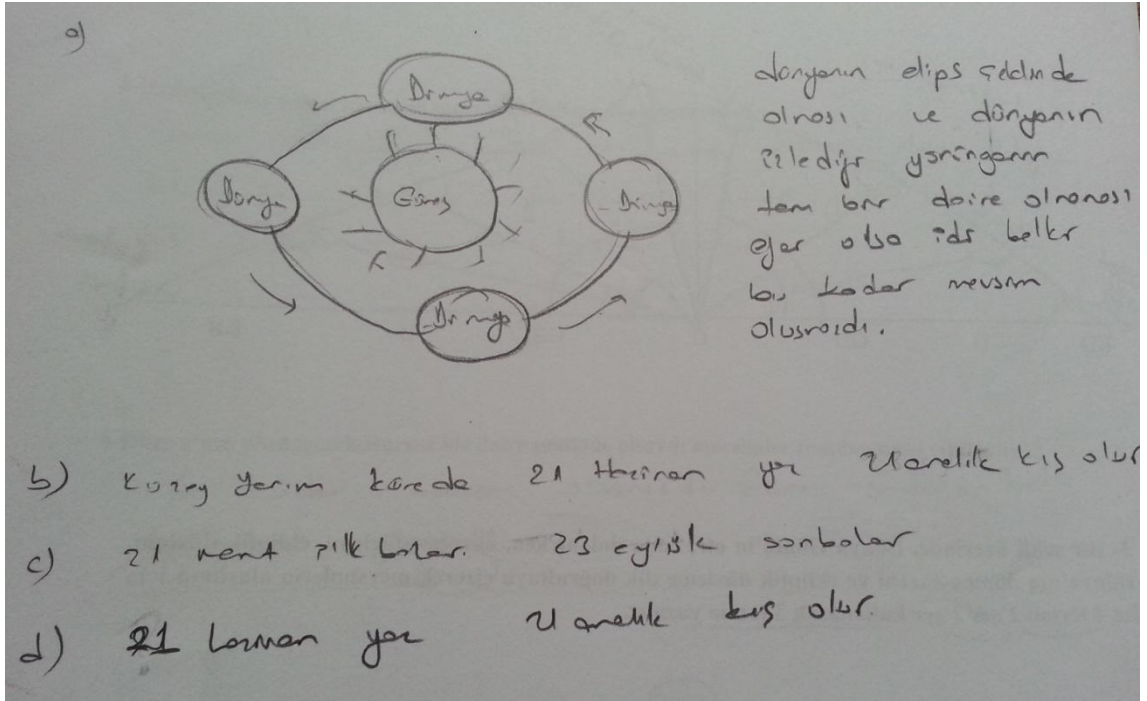 a)
Dünya
Dünya
Güneş
Dünya
Dünya
dünyanın elips şeklinde
olması ve dünyanın
izlediği yörüngenin
tam bir daire olmaması
eğer olsa idi belki
bu kadar mevsim
olusmazdı.
b) Kuzey yarım kürede 21 Haziran yaz 21 aralik kış olur
c) 21 mart ilk bahar. 23 eylül sonbahar
d) 21 yaz 21 aralık kış olur